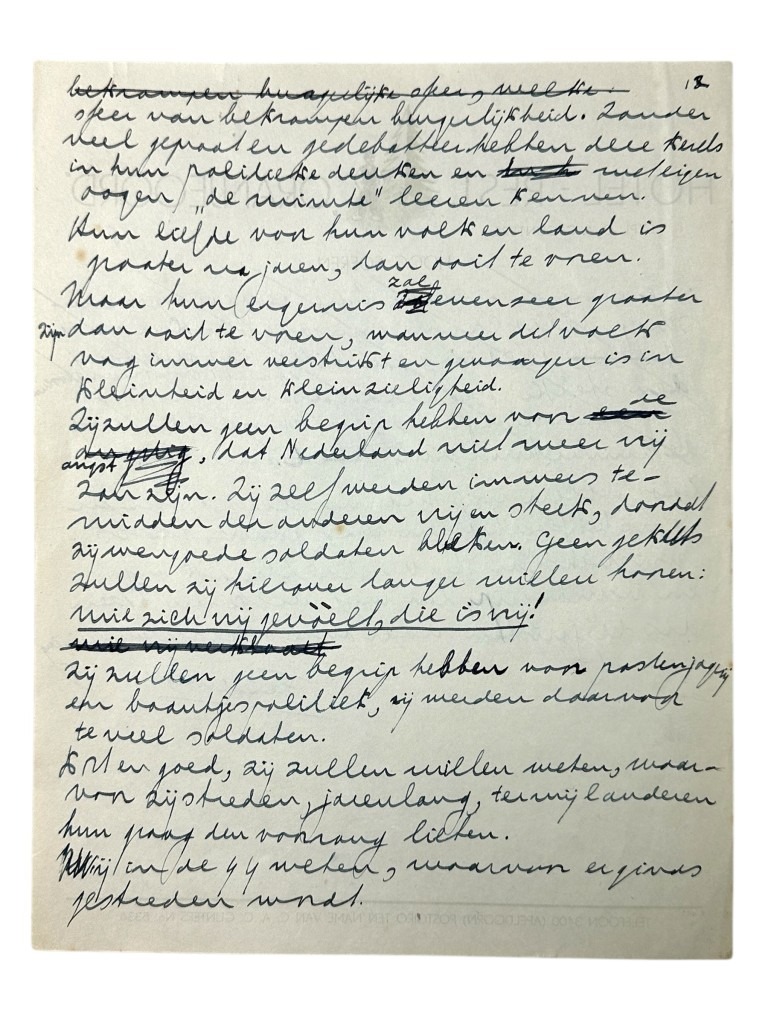 18
bekrompen burgerlijke sfeer, welke
sfeer van bekrompen burgerlijkheid. Zonder
veel gepraat en gedebatteer hebben deze kerels
in hun politieke denken en met eigen
oogen "de minute" leeren kennen.
Hun liefde voor hun volk en land is
grooter na jaren, dan ooit te voren.
Maar hun ergernis zal evenzeer grooter
zijn dan ooit te voren, wanneer het volk
nog immer verstrikt en gevangen is in
kleinheid en kleinzieligheid.
Zij zullen geen begrip hebben voor de
angst, dat Nederland niet meer vrij
zou zijn. Zij zelf werden immers te-
midden der anderen vrij en sterk, doordat
zij goede soldaten bleken. Geen geklets
zullen zij hierover langer willen hooren:
wie zich vrij gevoelt, die is vrij!
wie vrij verklaart
Zij zullen geen begrip hebben voor postenjagerij
en baantjespolitiek, zij werden daarvoor
te veel soldaten.
Kort en goed, zij zullen willen weten, waar-
voor zij streden, jarenlang, terwijl anderen
hun graag den voorrang lieten.
Wij in de 44 weten, waarvoor er ginds
gestreden wordt.
TELEFOON 3400 (APELDOORN) POSTGIRO TEN NAME VAN C. A. C.